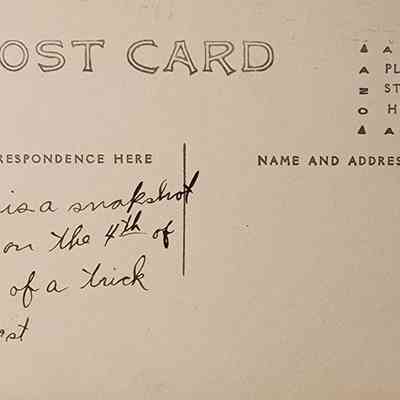 OST CARD
RESPONDENCE HERE
NAME AND ADDRES
is a snapshot
on the 4th of
of a trick
A
PL
ST
H
A